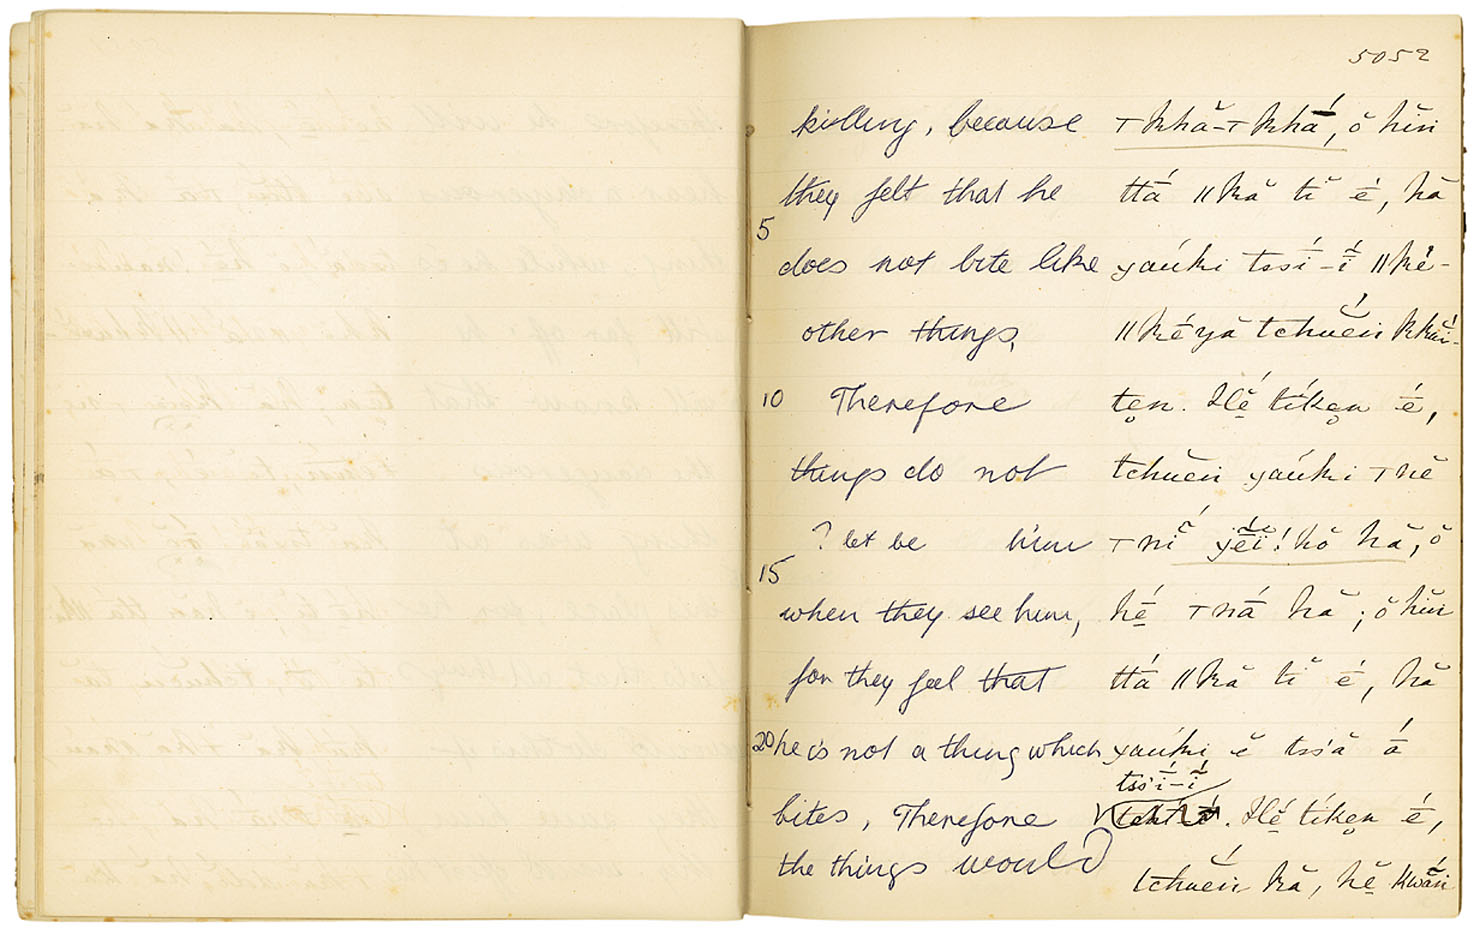 5052
killing, because ⊤khā̆-⊤khā́, ŏ hĭn
they felt that he ttā́ ǁkă tĭ é̄, hă
5
does not bite like yaúki tssī́-ī̆́ ǁké-
other things, ǁkéyă tchuĕ́n kkuĭ́-
10 Therefore ten. Hĕ́ tíken é̄,
things do not tchuĕn yaúki ⊤nĕ
? let be him ⊤nĭ́ !hŏ hă, ŏ
15
when they see him, hé̄ ⊤nā́ hă; ŏ hĭn
for they feel that ttā́ ǁkă tĭ é̄, hă
20 he is not a thing which yaúki ĕ tss'ă ā́
tss'ī́-ī̆́
bites, Therefore . Hĕ́ tíken é̄,
the things would tchuĕ́n kă, hĕ kwắn